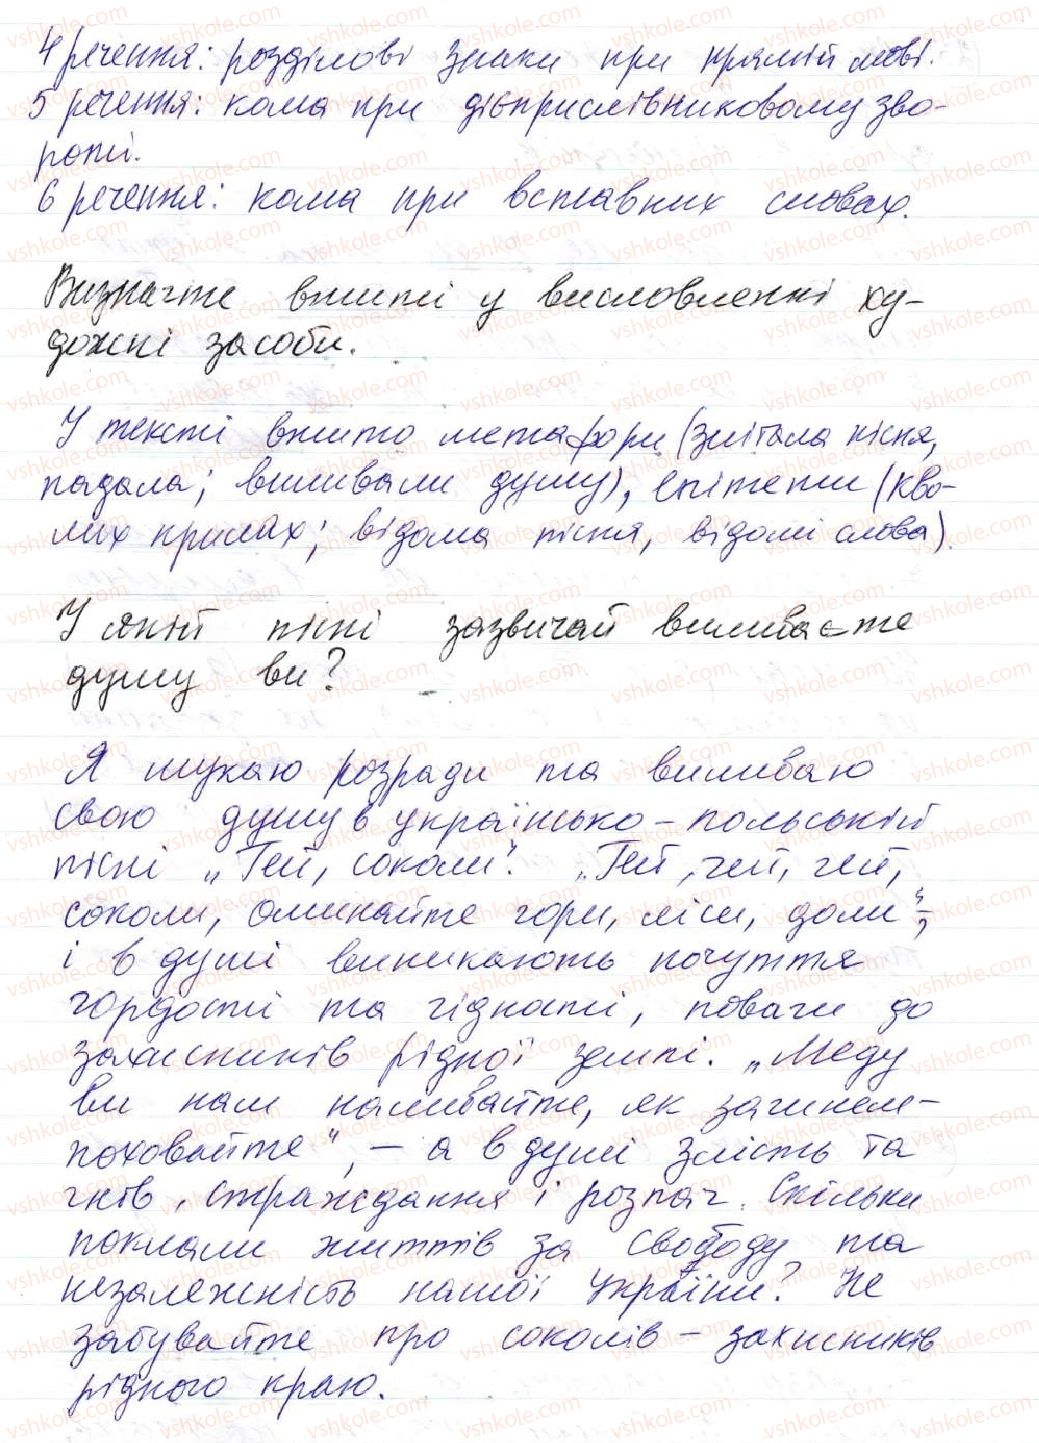 4 речення: розділові знаки при прямій мові.
5 речення: кома при дієприслівниковому зво-
роті.
6 речення: кома при вставних словах.
Визначте вжиті у висловленні ху-
дожні засоби.
У тексті вжито метафори (злітала пісня,
падала; виливали душу), епітети (кво-
лих крилах; відома пісня, відомі слова).
У якій пісні зазвичай виливаєте
душу ви?
Я шукаю розради та виливаю
свою душу в українсько-польській
пісні „Гей, соколи". „Гей, гей, гей,
соколи, оминайте гори, ліси, доли", –
і в душі виникають почуття
гордості та гідності, поваги до
захисників рідної землі. „Меду
ви нам наливайте, як загинем-
поховайте", – а в душі злість та
гнів, страждання і розпач. Скільки
поклали життів за свободу та
незалежність нашої України? Не
забувайте про соколів – захисників
рідного краю.